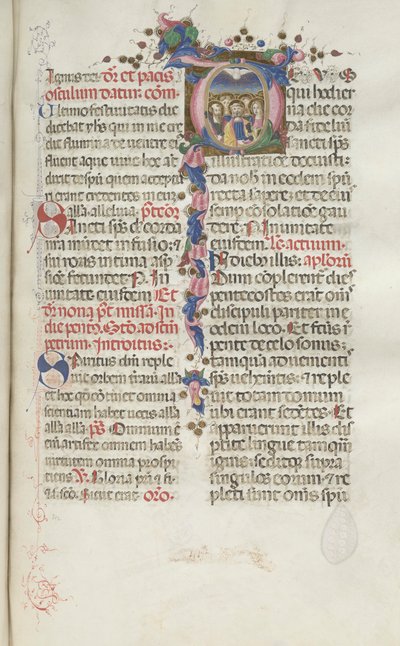 Agnus dei. dr et pacis
osculum datur. com
Ultimo festivitatis die
dicebat yhs qui in me cre
dit flumina de ventre ei
fluent aque vive hoc aut
dixit de spu quem accepturi
erant credentes in eum
alla alleluia. pt cor
Sancti sps dne corda
nra mundet infusio; &
sui roris intima asp
sione fecundet. P. In
unitate eiusdem Et
dr nona pt missa. In
die pentec. Stō ad scm
petrum. Introitus:
Spiritus dni reple
vit orbem terrarum alla
et hoc quod continet omnia
scientiam habet vocis alla
alla alla. ps Omnium e
nim artifex omnem habens
virtutem omnia prospi
ciens V. Gloria pri & fi
& sco. Sicut erat. oro.
Ds
qui hodier
na die cor
da fidelium
sancti sps
illustratione docuisti.
da nobis in eodem spu
recta sapere. et de eius
semper consolatione gau
dere. P. In unitate
eiusdem Lc actuum.
In diebus illis: aplorum
Dum complerentur dies
pentecostes erant oms
discipuli pariter in e
odem loco. Et factus est re
pente de celo sonus
tamquam advenientis
sps vehementis. & reple
vit totam domum
ubi erant sedentes. Et
apparuerunt illis dis
ptite lingue tamquam
ignis. seditque supra
singulos eorum. & re
pleti sunt oms spu